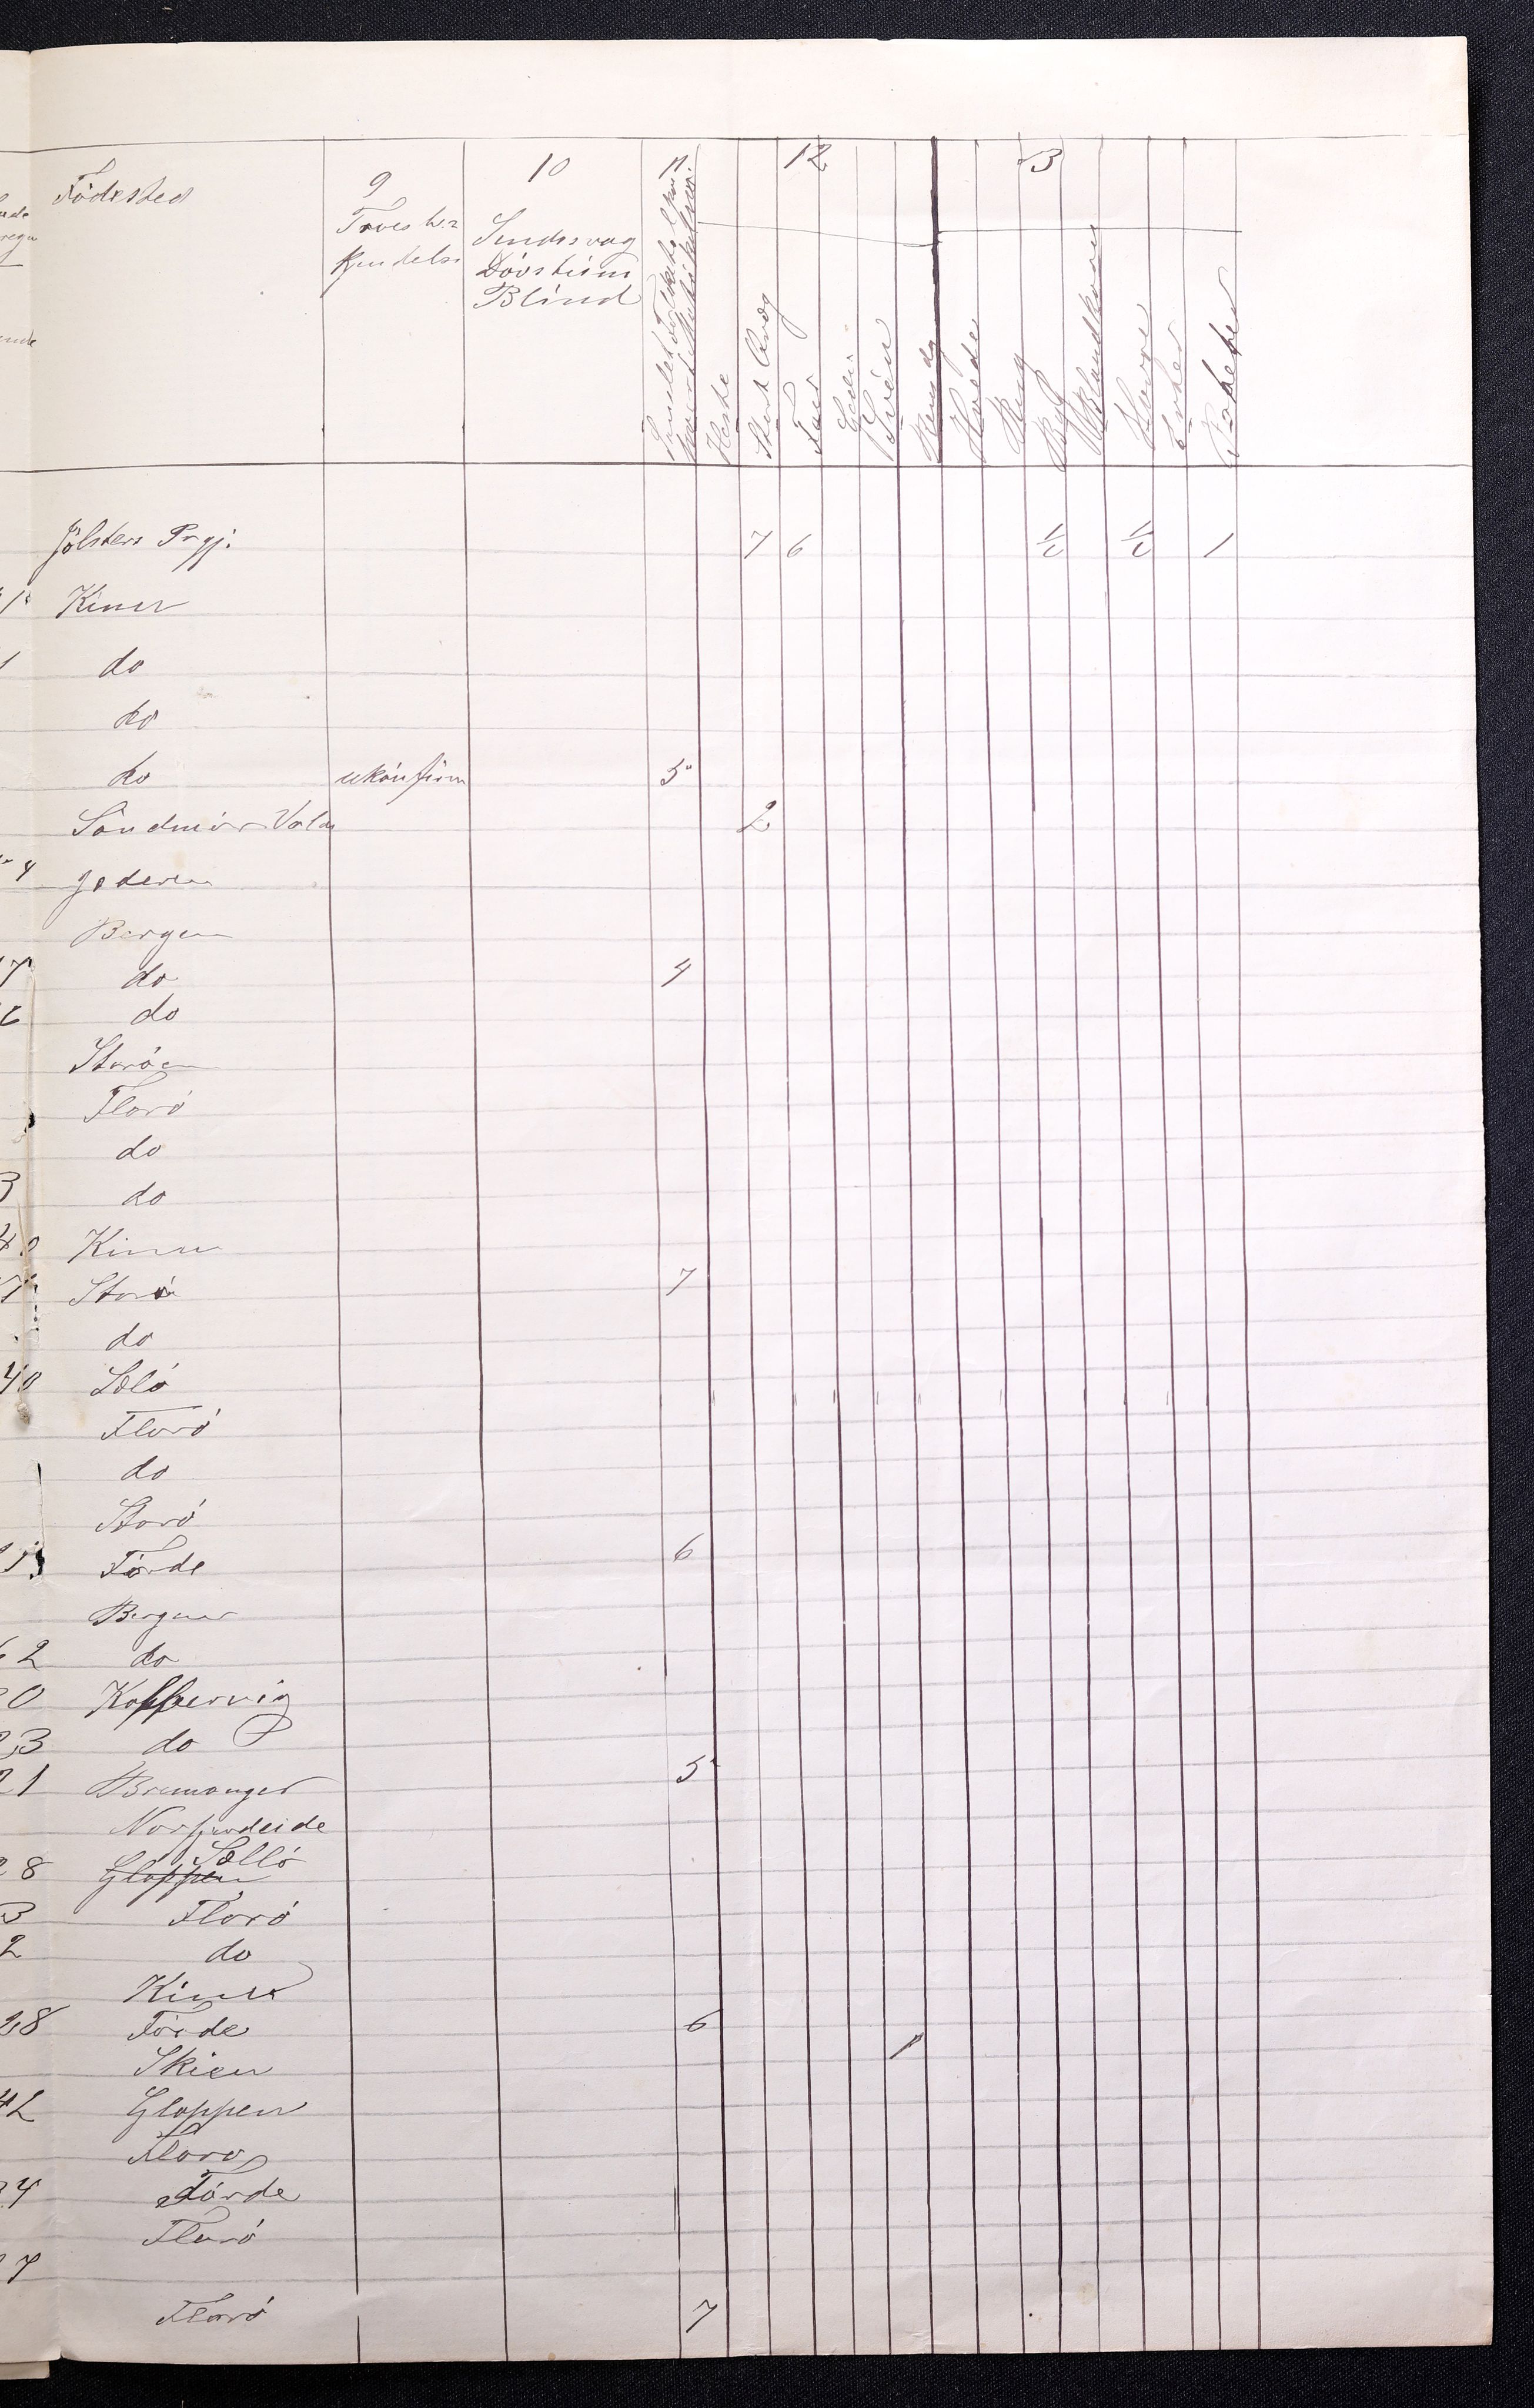 Födested
9
Troesbe
kjendelse
10
Sindssvag
Dövstum
Blind
11
12
Heste
Stort Qvæg
Faar
Sviin
Rensdy
13
Hvede
Rug
Byg
Blandkorn
Havre
Erter
Poteter
Jölsters Prgj. 7 6 1/2 1/2 1
Kinn
1 do
do
do ukonfirm 5
Söndmör Volde 2
4 Jederen
Bergen
7 do 4
6 do
Storöen
Florö
do
3 do
Kinn
Storö 7
do
40 Sölö
Florö
do
Storö
Förde 6
Bergen
2 do
0 Koppervig
23 do
21 Bremanger 5
Norfjordeide
Sölló
28 Gloppen
3 Floró
2 do
Kinn
28 Förde 6
Skien 1
42 Gloppen
Floro
24 Förde
Floró
7
Floró 7